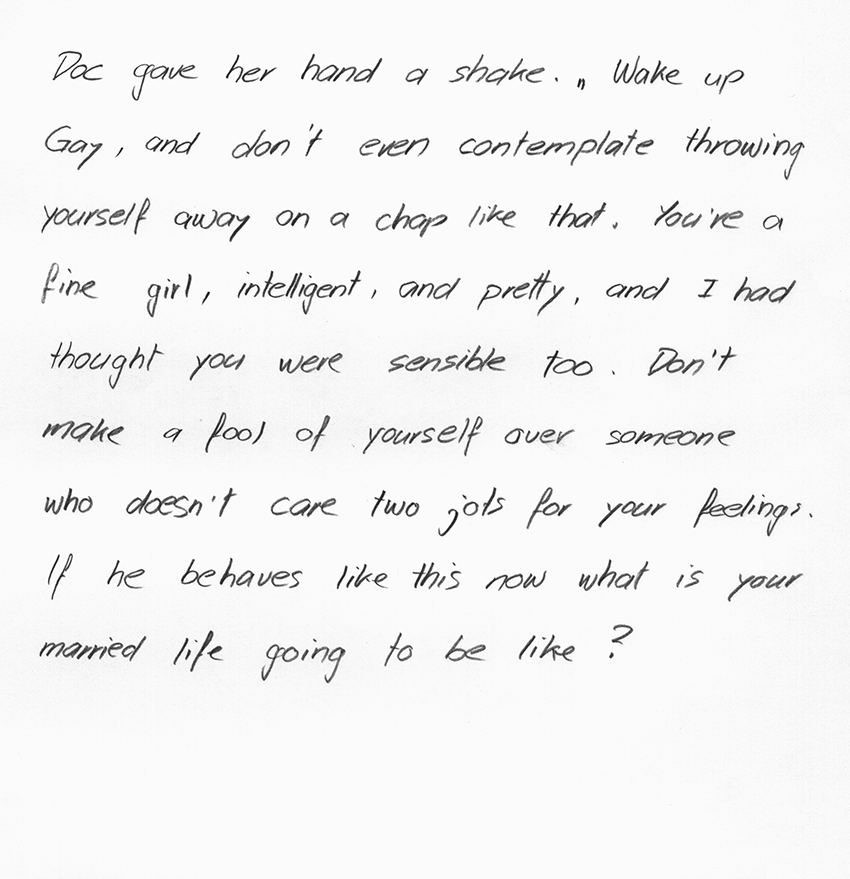 Doc gave her hand a shake. „ Wake up
Gay, and don't even contemplate throwing
yourself away on a chap like that. You're a
fine girl, intelligent, and pretty, and I had
thought you were sensible too. Don't
make a fool of yourself over someone
who doesn't care two jots for your feelings.
If he behaves like this now what is your
married life going to be like ?